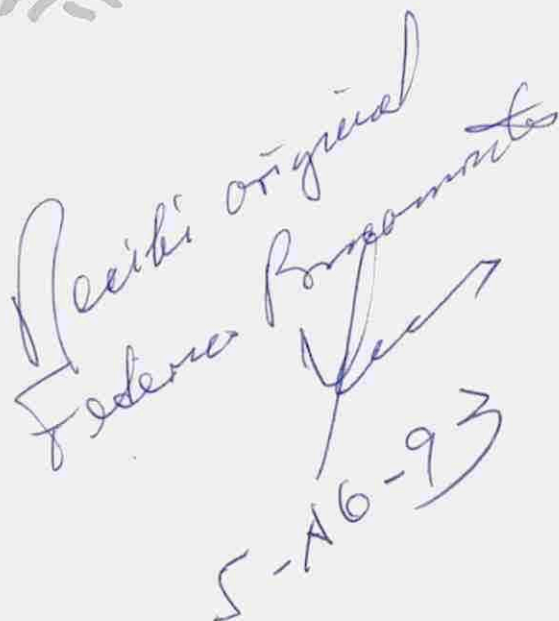 Recibi original
Federico Bracamontes
5-AG-93